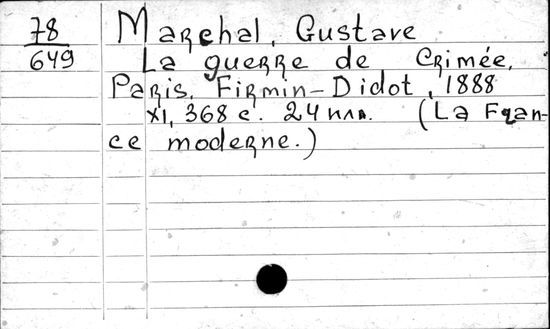 78 Marchal, Gustave
649 La guerre de Crimée,
Paris, Firmin-Didot, 1888
XI, 368 с. 24 илл. (La Fran-
ce moderne.)